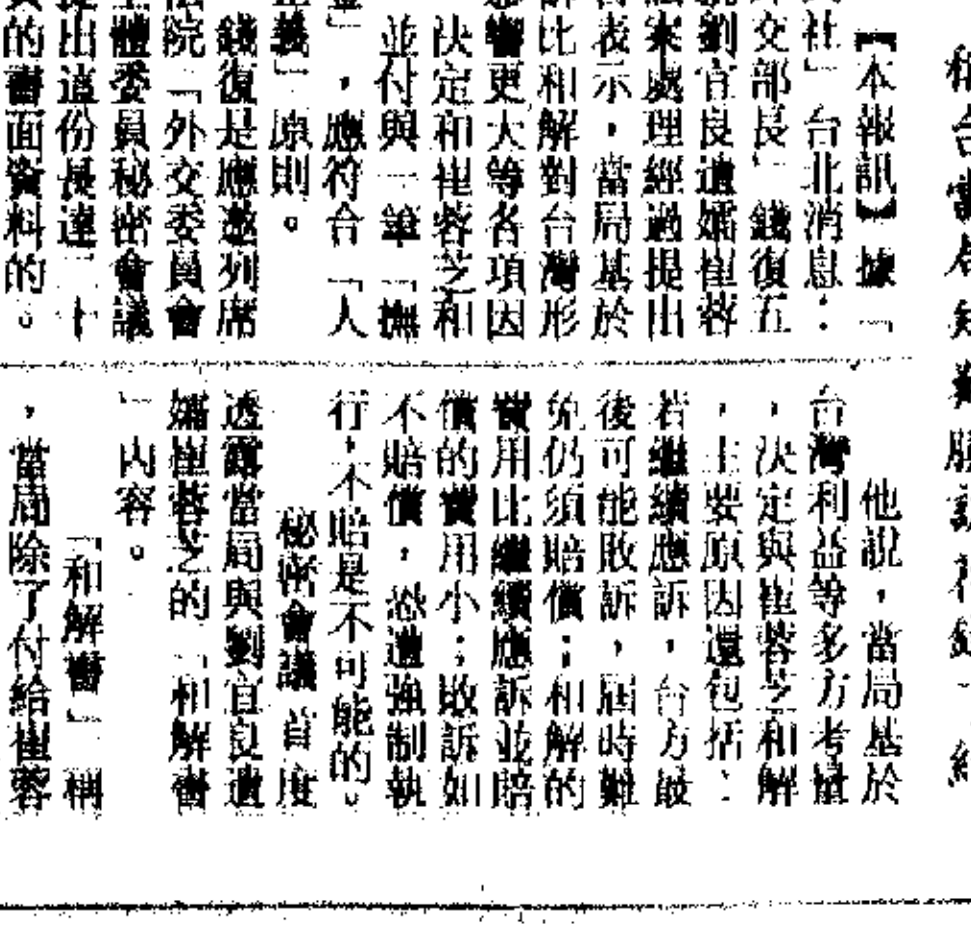 【本報訊】據「
社」台北消息:
交部長」錢復五
劉宜良遺孀崔蓉
案處理經過提出
表示,當局基於
比和解對台灣形
響更大等各項因
決定和崔蓉芝和
並付與一筆「撫
」,應符合「人
義」原則。
錢復是應邀列席
院「外交委員會
體委員秘密會議
出這份長達二十
的書面資料的。
他說,當局基於
台灣利益等多方考量
,決定與崔蓉芝和解
,主要原因還包括:
若繼續應訴,台方最
後可能敗訴,屆時難
免仍須賠償;和解的
費用比繼續應訴並賠
償的費用小;敗訴如
不賠償,恐遭強制執
行,不賠是不可能的。
秘密會議首度
透露當局與劉宜良遺
孀崔蓉芝的「和解書
」內容。
「和解書」稱
,當局除了付給崔蓉